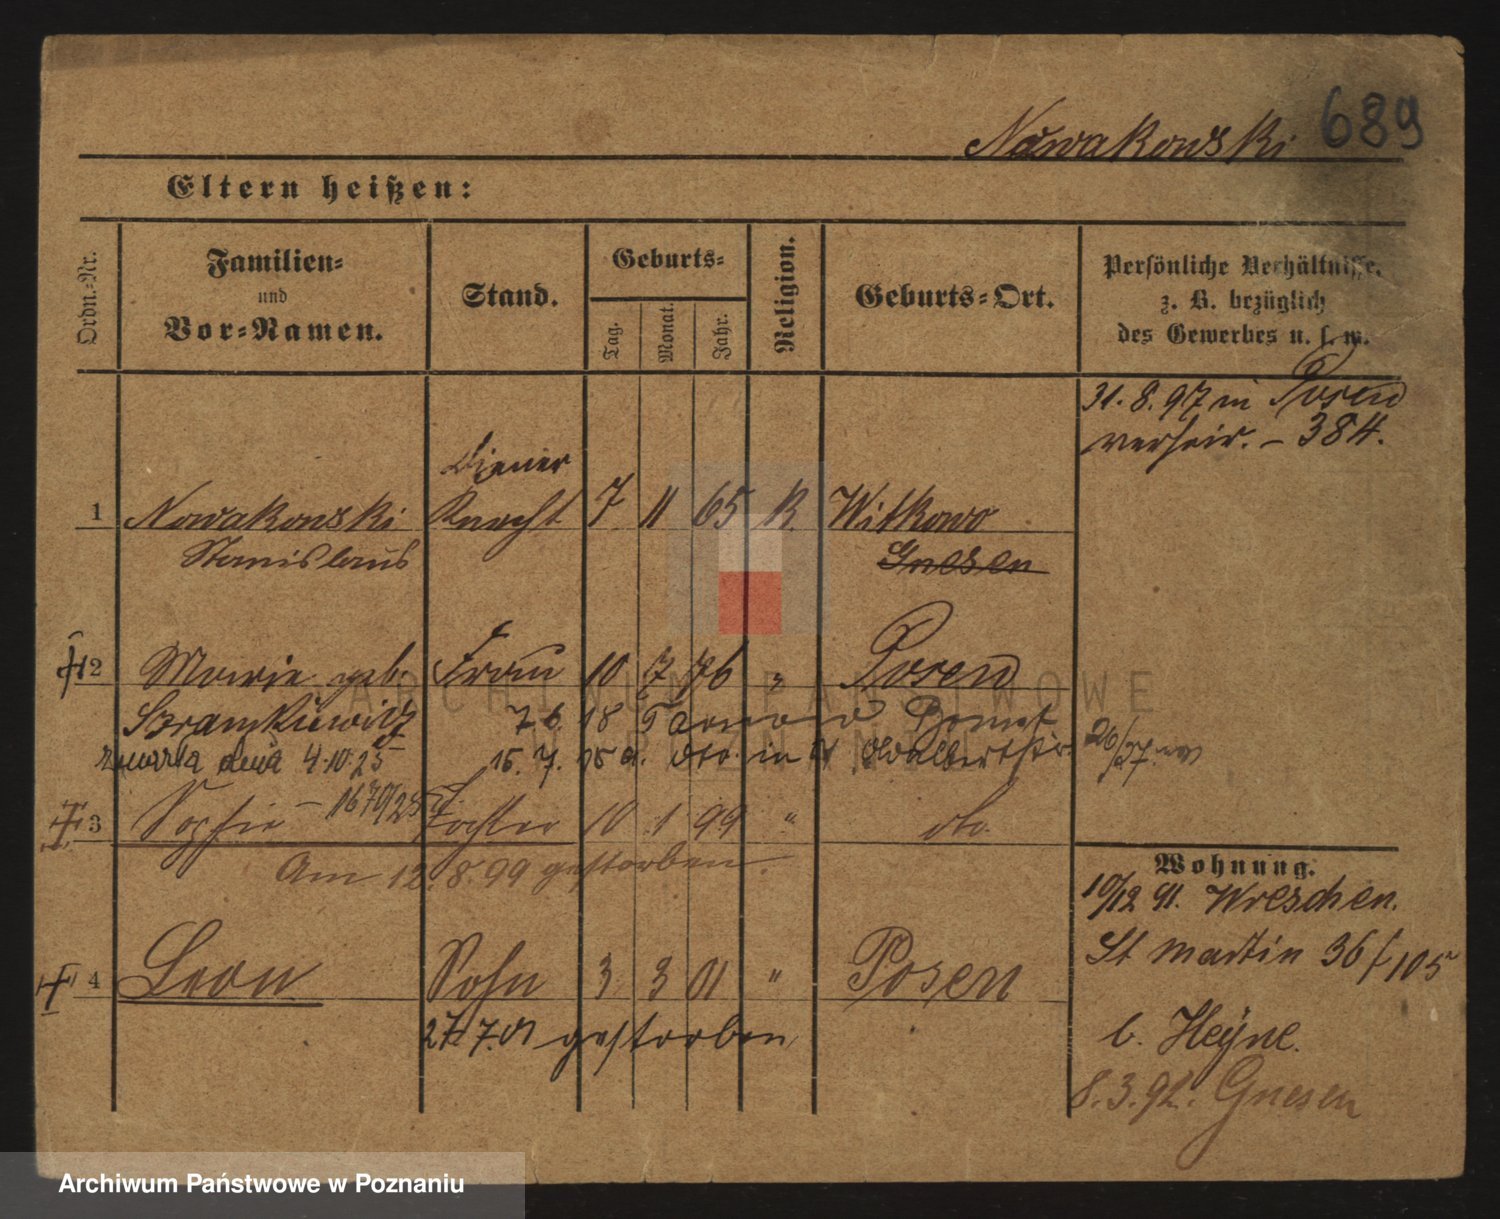 Nowakowski 689
Eltern heißen:
Ordn.-Nr.
Familien-
und
Vor-Namen.
Stand.
Geburts-
Tag.
Monat.
Jahr.
Religion.
Geburts-Ort.
Persönliche Verhältnisse,
z. B. bezüglich
des Gewerbes u. s. w.
31. 8. 97 in Posen
verheir. – 384.
Diener
1 Nowakowski Knecht 7 11 65 K. Witkowo
Stanislaus Gnesen
2 Marie geb. Frau 10 7 76 " Posen
Szramkiewicz 7. 6. 18
zmarła dnia 4.10.25 15. 7. in
– 1670/25
3 Sophie Tochter 10 1 99 " do.
Am 12. 8. 99 gestorben
Wohnung.
10/12 91. Wreschen.
St Martin 36 / 105
4 Leon Sohn 3 3 01 " Posen
27. 7. 01 gestorben
b. Heyne.
8. 3. 92. Gnesen
ARCHIWUM PAŃSTWOWE
W POZNANIU
Archiwum Państwowe w Poznaniu